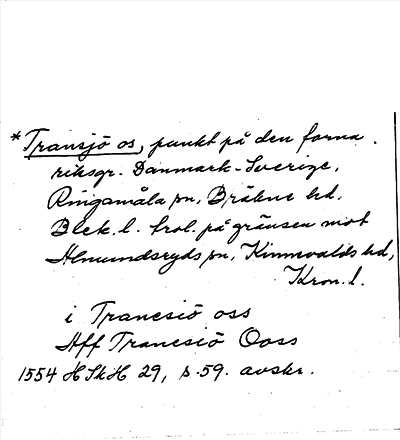 *Transjö os, punkt på den forna
riksgr. Danmark-Sverige,
Ringamåla sn, Bräkne hd,
Blek. l. trol. på gränsen mot
Almundsryds sn, Kinnevalds hd,
Kron. l.
i Trancsiö oss
Aff Trancsiö Ooss
1554 HSkH 29, s. 59. avskr.